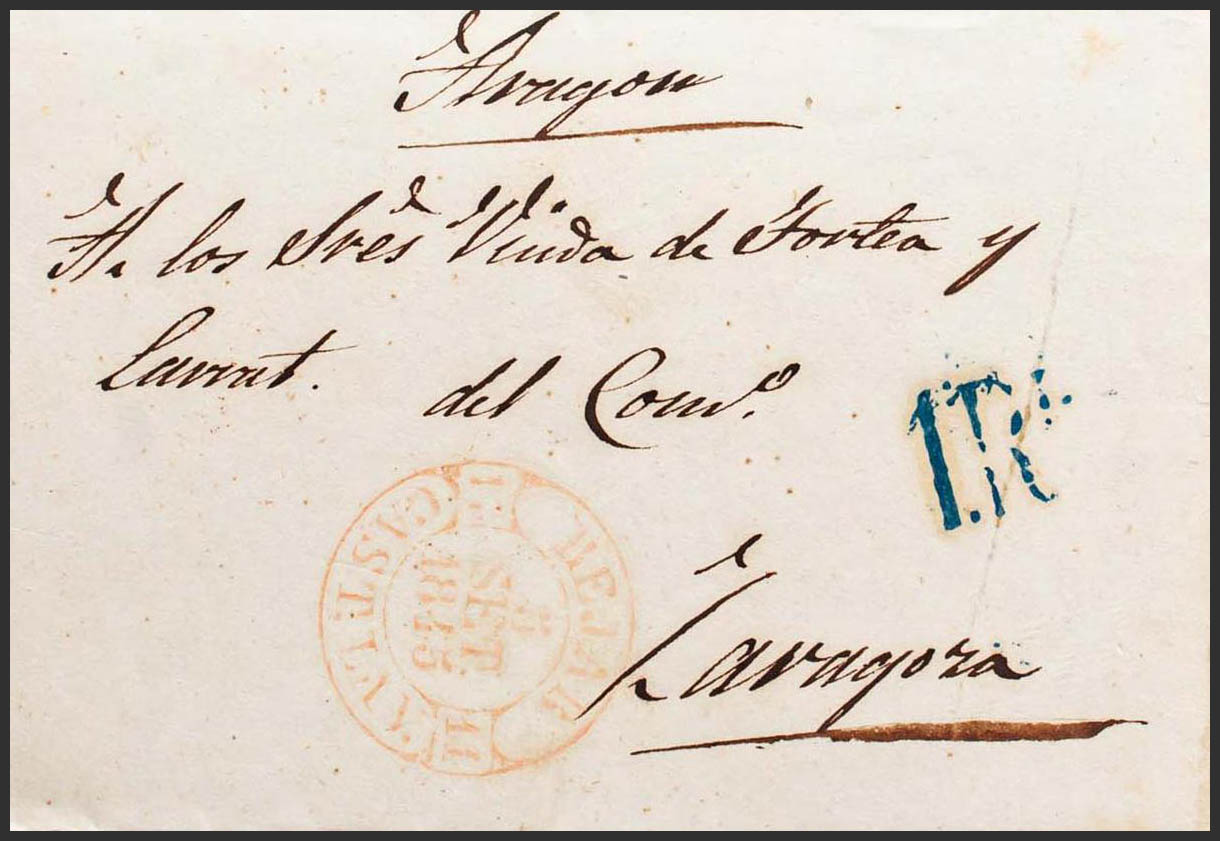 Aragon
A los Sres Viuda de Fortea y
del Com.o
1R.
BEJAR
CASTILLA
SET
1845
11
Zaragoza